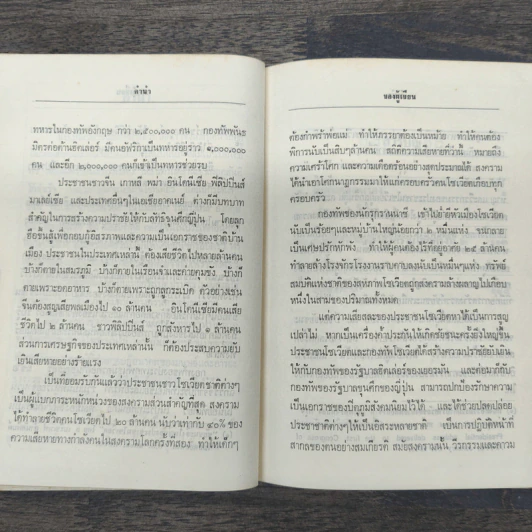 คำนำ
ทหารในกองทัพอังกฤษ กว่า ๒,๕๐๐,๐๐๐ คน กองทัพพันธ
มิตรต่อต้านฮิตเล่อร์ มีคนอัฟริกาเป็นทหารอยู่ราว ๑,๐๐๐,๐๐๐
คน และอีก ๒,๐๐๐,๐๐๐ คนก็เข้าเป็นทหารช่วยรบ
ประชาชนชาวจีน เกาหลี พม่า อินโดนีเซีย ฟิลิปปินส์
มาเลเซีย และประเทศอื่นๆในเอเชียอาคเนย์ ต่างก็มีบทบาท
สำคัญในการสร้างความปราชัยให้กับลัทธิขุนศึกญี่ปุ่น โดยลุก
ฮือขึ้นสู้เพื่อกอบกู้อิสรภาพและความเป็นเอกราชของชาติบ้าน
เมือง ประชาชนในประเทศเหล่านั้น ต้องเสียชีวิตไปหลายล้านคน
บ้างก็ตายในสมรภูมิ บ้างก็ตายในเรือนจำและค่ายคุมขัง บ้างก็
ตายเพราะอดอาหาร บ้างก็ตายเพราะถูกลูกระเบิด ตัวอย่างเช่น
จีนต้องสูญเสียพลเมืองไป ๑๐ ล้านคน อินโดนีเซียมีคนเสีย
ชีวิตไป ๒ ล้านคน ชาวฟิลิปปินส์ ถูกสังหารไป ๑ ล้านคน
ส่วนการเศรษฐกิจของประเทศเหล่านั้น ก็ต้องประสบความยับ
เยินเสียหายอย่างร้ายแรง
เป็นที่ยอมรับกันแล้วว่าประชาชนชาวโซเวียตชาติต่างๆ
เป็นผู้แบกภาระหนักหน่วงของสงครามส่วนสำคัญที่สุด สงคราม
ได้ทำลายชีวิตคนโซเวียตไป ๒๐ ล้านคน นับว่าเท่ากับ ๔๐% ของ
ความเสียหายทางกำลังคนในสงครามโลกครั้งที่สอง ทำให้เด็กๆ
ของผู้เขียน
ต้องกำพร้าพ่อแม่ ทำให้ภรรยาต้องเป็นหม้าย ทำให้คนต้อง
พิการนับเป็นสิบๆล้านคน สถิติความเสียหายที่ว่านี้ หมายถึง
ความเศร้าโศก และความเดือดร้อนอย่างสุดประมาณได้ สงคราม
ได้นำเอาโศกนาฏกรรมมาให้แก่ครอบครัวคนโซเวียตเกือบทุก
ครอบครัว
กองทัพของนักรุกรานนาซี เข้าไปย่ำยีหัวเมืองโซเวียต
นับเป็นร้อยๆและหมู่บ้านใหญ่น้อยกว่า ๒ หมื่นแห่ง จนกลาย
เป็นเศษปรักหักพัง ทำให้ผู้คนต้องไร้ที่อยู่อาศัย ๒๕ ล้านคน
ทำลายล้างโรงจักรโรงงานราบคาบลงนับเป็นหมื่นๆแห่ง ทรัพย์
สมบัติแห่งชาติของสหภาพโซเวียตถูกสงครามล้างผลาญไปเกือบ
หนึ่งในสามของปริมาณทั้งหมด
แต่ความเสียสละของประชาชนโซเวียตหาได้เป็นการสูญ
เปล่าไม่ หากเป็นเครื่องค้ำประกันให้เกิดชัยชนะครั้งยิ่งใหญ่ขึ้น
ประชาชนโซเวียตและกองทัพโซเวียตได้สร้างความปราชัยยับเยิน
ให้กับกองทัพของรัฐบาลฮิตเล่อร์ของเยอรมัน และต่อมาก็กับ
กองทัพของรัฐบาลขุนศึกของญี่ปุ่น สามารถปกป้องรักษาความ
เป็นเอกราชของปิตุภูมิสังคมนิยมไว้ได้ และได้ช่วยปลดปล่อย
ประชาชาติต่างๆให้เป็นอิสระหลายชาติ เป็นการปฏิบัติหน้าที่
สากลของตนอย่างสมเกียรติ สมัยสงครามนั้น วีรกรรมและความ